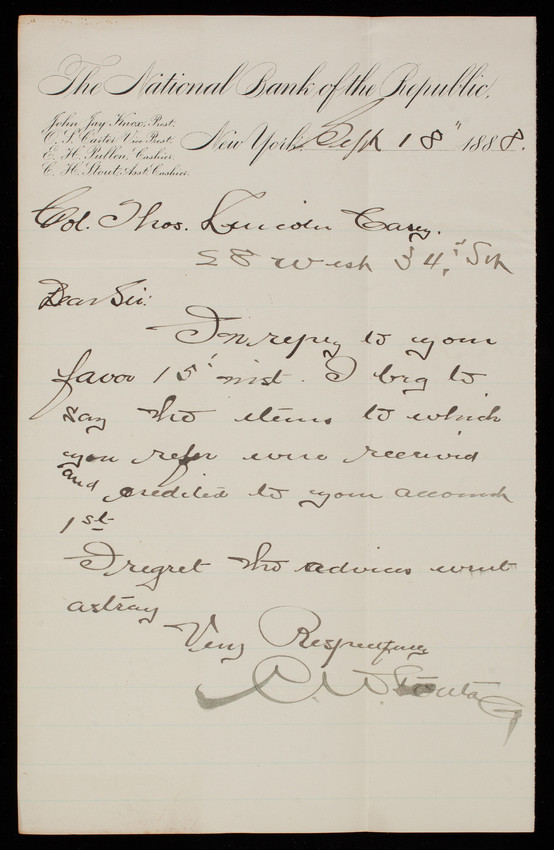 The National Bank of the Republic.
John Jay Knox, Prest.
O. D. Carter Vice Prest.
E. H. Pullen, Cashier.
C. H. Stout, Asst Cashier.
New York, Sept 18" 1888.
Col. Thos. Lincoln Casey.
28 West 34, St
Dear Sir:
In reply to your
favor 15' inst. I beg to
say the items to which
you refer were received
and credited to your account
1st
I regret the advices went
astray
Very Respectfully
Stout